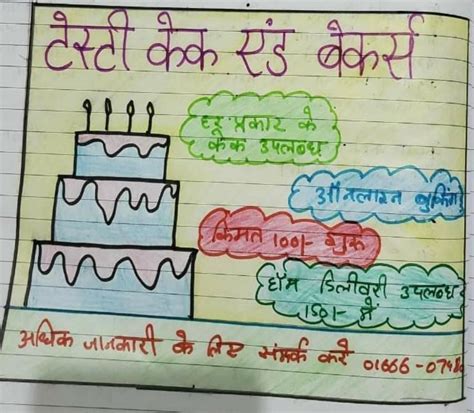 टेस्टी केक एंड बेकर्स
हर प्रकार के
केक उपलब्ध
ऑनलाइन बुकिंग
किमत 100/- शुरू
हॉम डिलीवरी उपलब्ध
150/- में
अधिक जानकारी के लिए संम्पर्क करें 01666-074